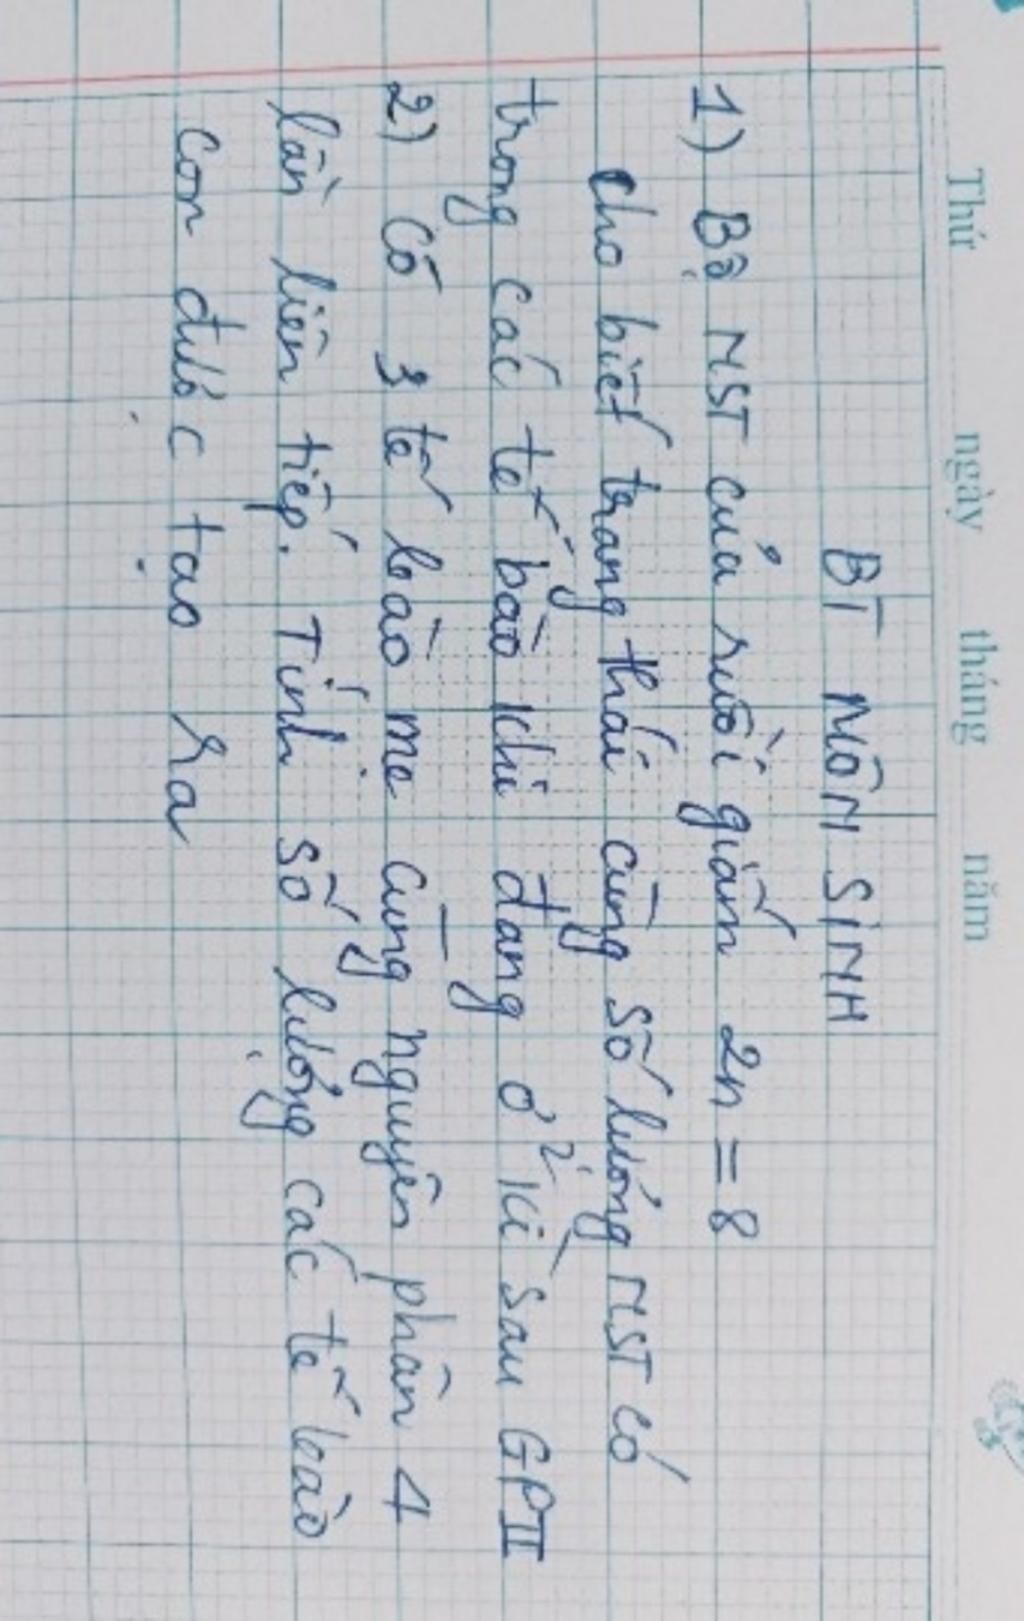 Thứ ngày tháng năm
BT MÔN SINH
1) Bộ NST của ruồi giấm 2n = 8
cho biết trạng thái cùng số lượng NST có
trong các tế bào khi đang ở kì sau GPII
2) Có 3 tế bào mẹ cùng nguyên phân 4
lần liên tiếp. Tính số lượng các tế bào
con được tạo ra